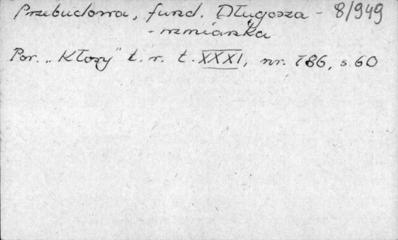 Przebudowa, fund. Długosza - 8/949
- wzmianka
Por. "Kłosy" t. r. t. XXXI, nr. 786, s 60